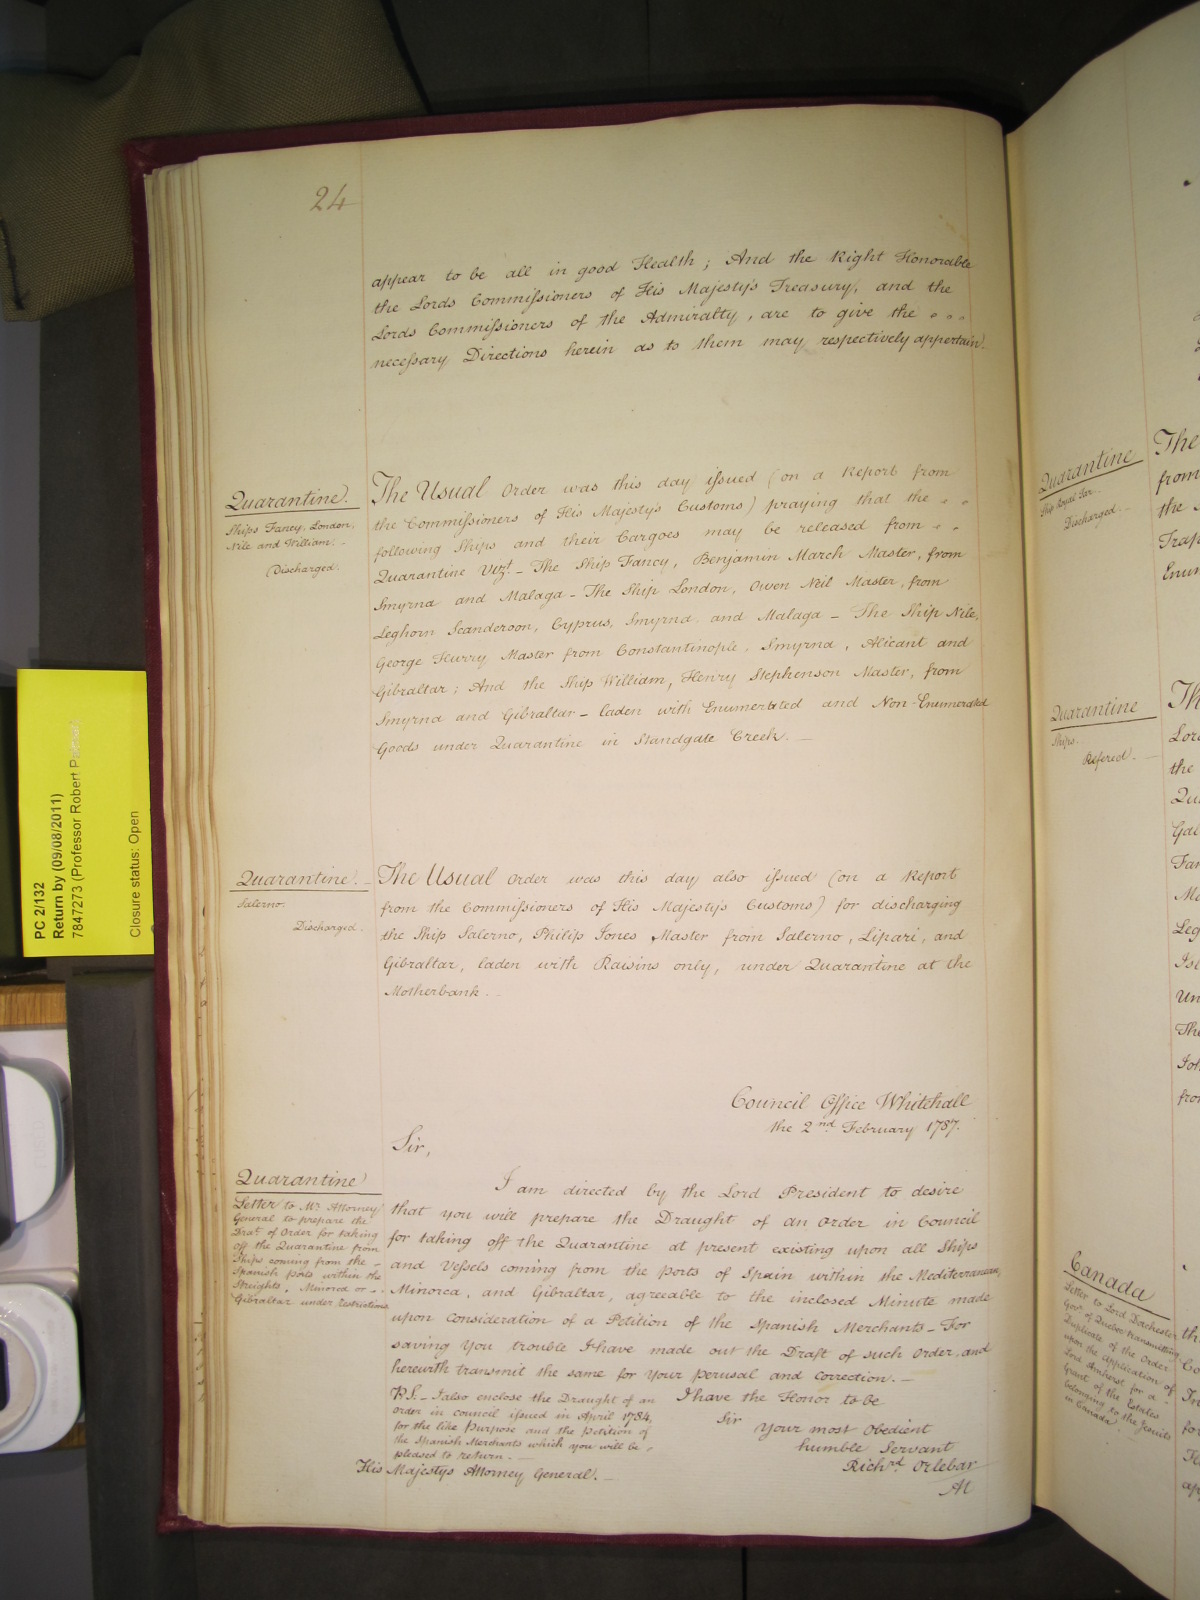 24
appear to be all in good Health; And the Right Honorable
the Lords Commissioners of His Majesty's Treasury, and the
Lords Commissioners of the Admiralty, are to give the
necessary Directions herein as to them may respectively appertain.
Quarantine.
Ships Fancy, London,
Nile and William. -
Discharged.
The Usual Order was this day issued (on a Report from
the Commissioners of His Majesty's Customs) praying that the
following Ships and their Cargoes may be released from
Quarantine Vizt. - The Ship Fancy, Benjamin March Master, from
Smyrna and Malaga - The Ship London, Owen Neil Master, from
Leghorn Scanderoon, Cyprus, Smyrna and Malaga - The Ship Nile,
George Hurry Master from Constantinople, Smyrna, Alicant and
Gibraltar; And the Ship William, Henry Stephenson Master, from
Smyrna and Gibraltar - laden with Enumerated and Non-Enumerated
Goods under Quarantine in Standgate Creek. -
Quarantine. -
Salerno.
Discharged.
The Usual Order was this day also issued (on a Report
from the Commissioners of His Majesty's Customs) for discharging
the Ship Salerno, Philip Jones Master from Salerno, Lipari, and
Gibraltar, laden with Raisins only, under Quarantine at the
Motherbank.
Council Office Whitehall
the 2nd February 1787.
Sir,
Quarantine
Letter to Mr Attorney
General to prepare the
Drat. of Order for taking
off the Quarantine from
Ships coming from the -
Spanish ports within the
Streights, Minorca or
Gibraltar under restrictions
I am directed by the Lord President to desire
that you will prepare the Draught of an Order in Council
for taking off the Quarantine at present existing upon all Ships
and Vessels coming from the ports of Spain within the Mediterranean,
Minorca, and Gibraltar, agreeable to the inclosed Minute made
upon Consideration of a Petition of the Spanish Merchants - For
saving You trouble I have made out the Draft of such Order, and
herewith transmit the same for Your perusal and Correction. -
P.S. - I also enclose the Draught of an
order in council issued in April 1784,
for the like Purpose and the Petition of
the Spanish Merchants which you will be
pleased to return. -
I have the Honor to be
Sir
Your most Obedient
humble Servant
Richd. Orlebar
His Majestys Attorney General. -
At
PC 2/132
Return by (09/08/2011)
7847273 (Professor Robert Palmer)
Closure status: Open
Quarantine
Discharged.
The
from
the
Quarantine
Ships
Refered. -
Th
Lord
the
Qua
Leg
Un
The
fro
Canada
Letter to Lord Dorchester
Govr. of Quebec transmitting
Duplicate of the Order
upon the Application of
Lord Amherst for a
Grant of the Estates
belonging to the Jesuits
in Canada
th
In
for